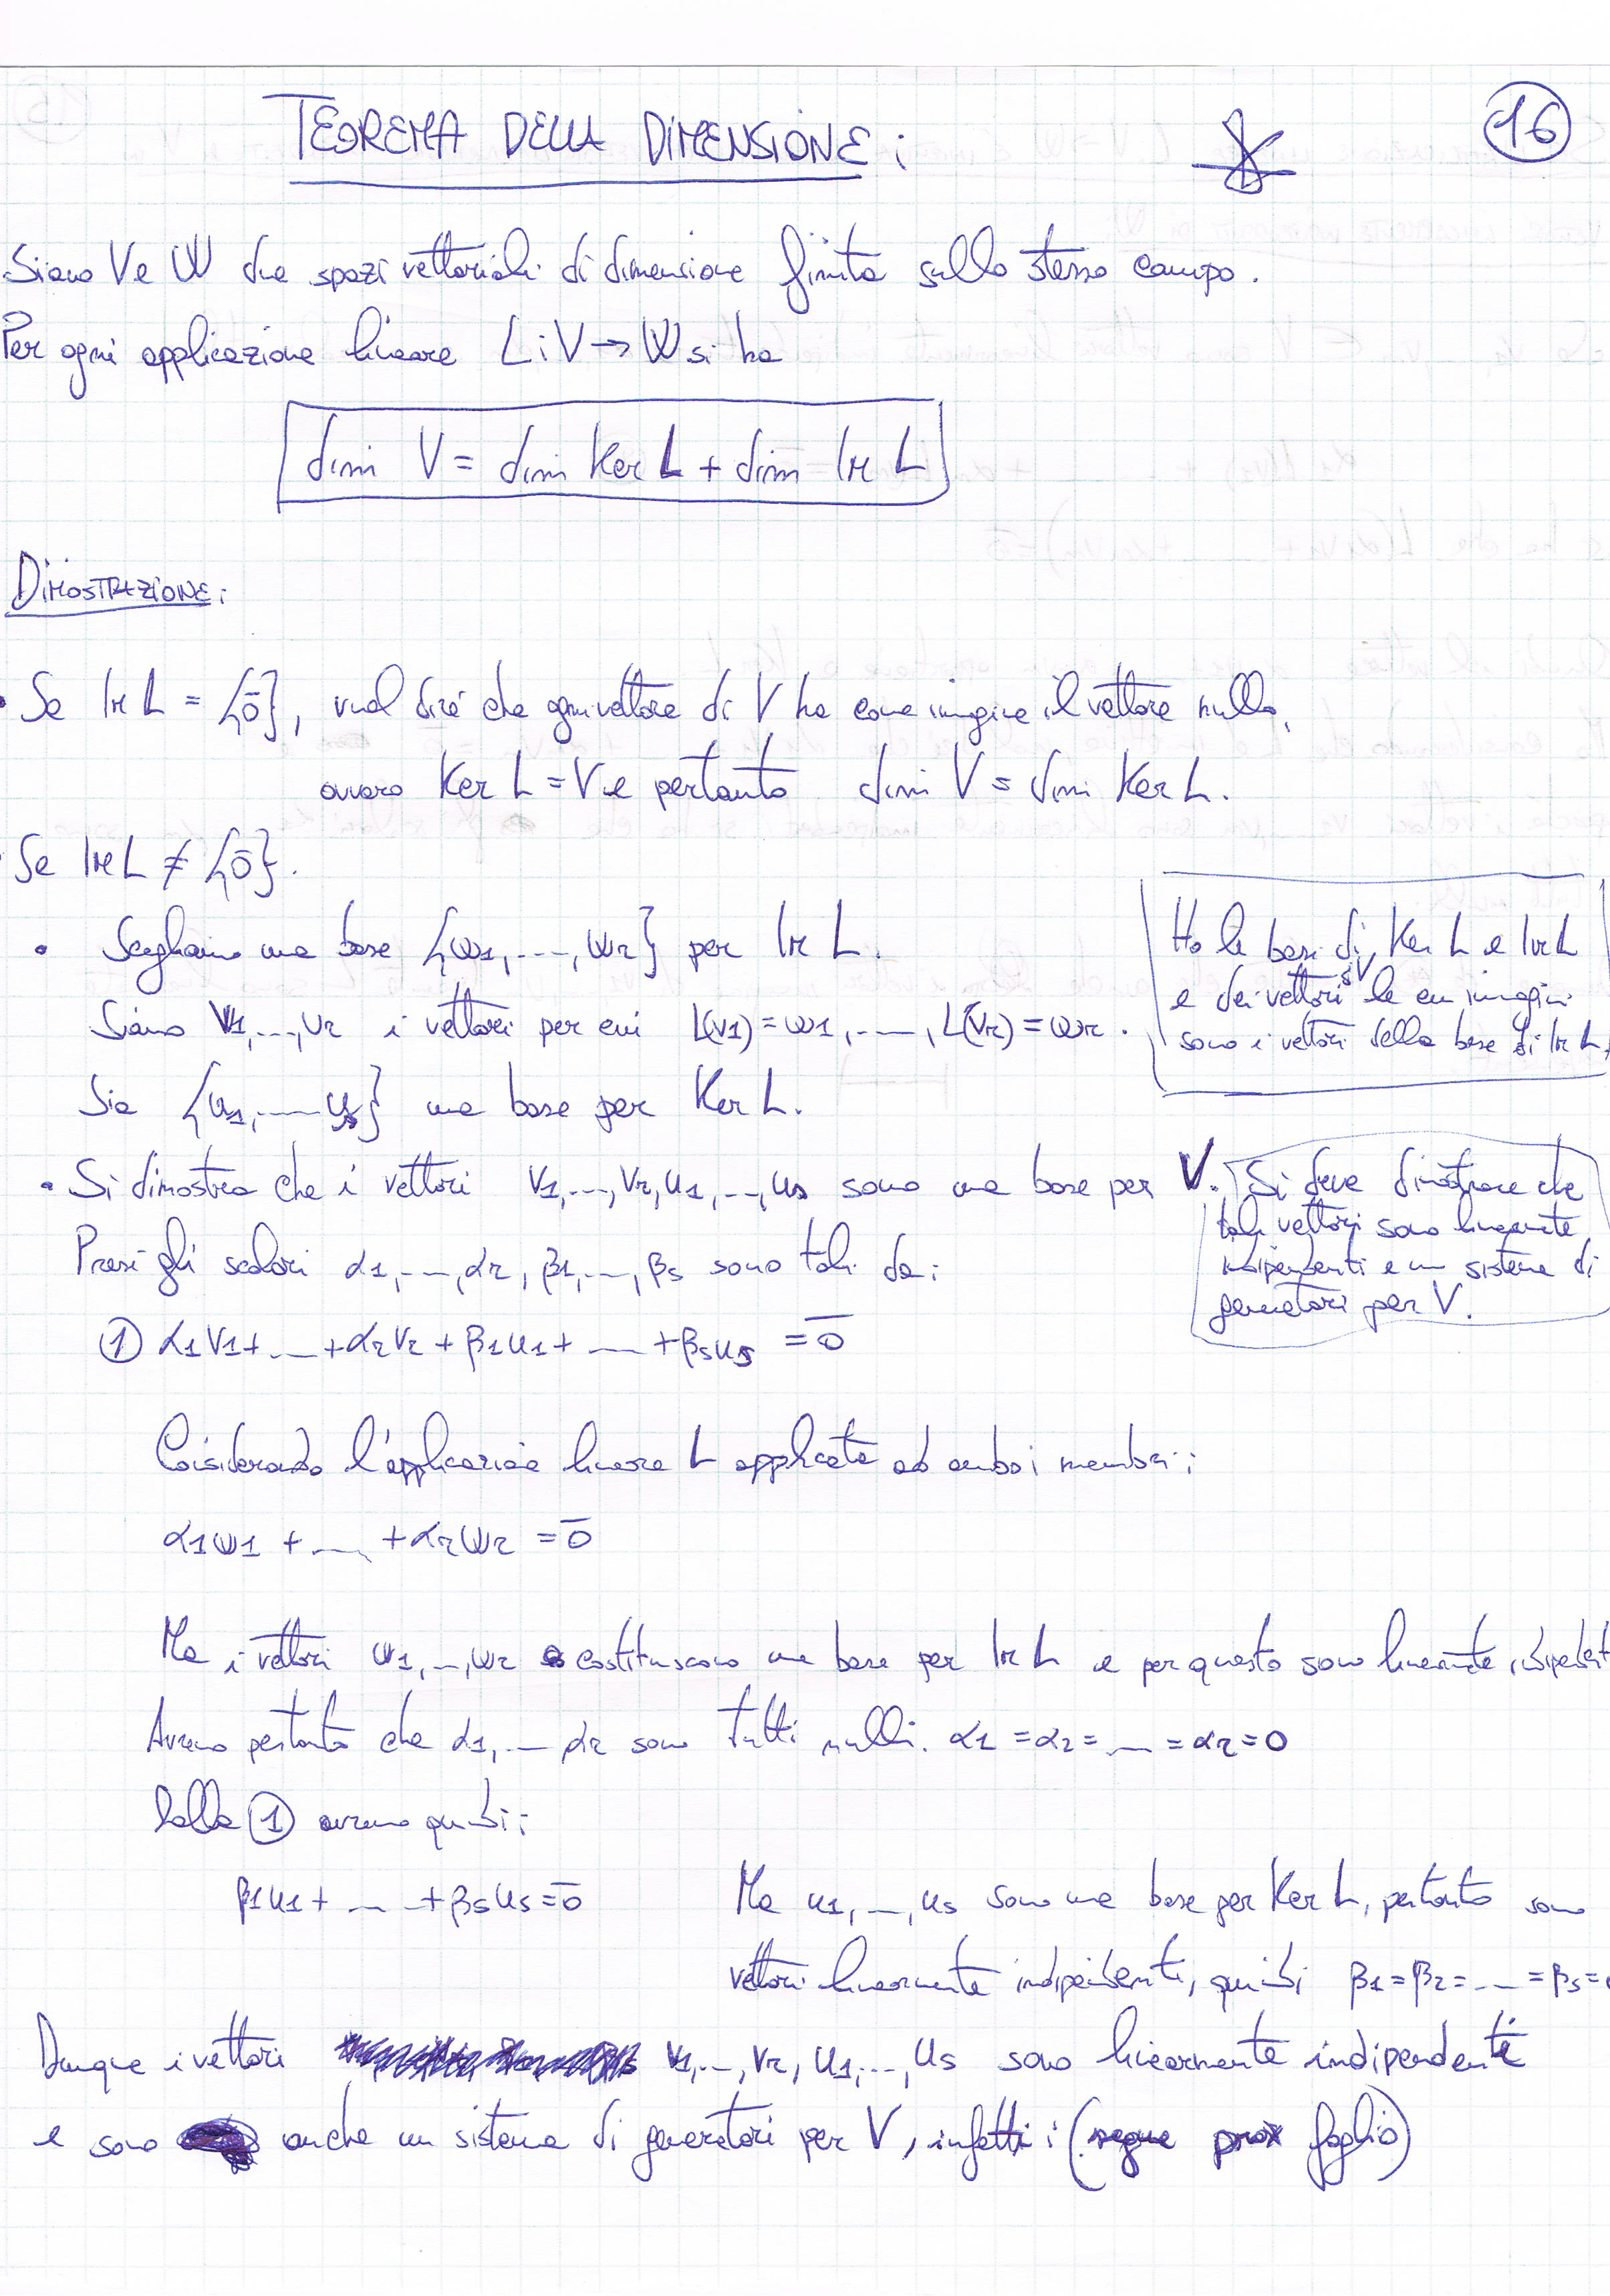 TEOREMA DELLA DIMENSIONE:
16
Siano V e W due spazi vettoriali di dimensione finita sullo stesso campo.
Per ogni applicazione lineare L: V → W si ha
dim V = dim Ker L + dim Im L
DIMOSTRAZIONE:
• Se Im L = {0̄}, vuol dire che ogni vettore di V ha come imagine il vettore nullo,
ovvero Ker L = V e pertanto dim V = dim Ker L.
• Se Im L ≠ {0̄}.
• Scegliamo una base {w1, ..., wr} per Im L.
Siano v1, ..., vr i vettori per cui L(v1) = w1, ..., L(vr) = wr.
Sia {u1, ... us} una base per Ker L.
Ho le basi di Ker L e Im L
e dei vettori di V le cui imagini
sono i vettori della base di Im L.
• Si dimostra che i vettori v1, ..., vr, u1, ..., us sono una base per V.
Presi gli scalari α1, ..., αr, β1, ..., βs sono tali da:
① α1v1 + ... + αrvr + β1u1 + ... + βsus = 0̄
Si deve dimostrare che
tali vettori sono linearmente
indipendenti e un sistema di
generatori per V.
Considerando l'applicazione lineare L applicata ad ambo i membri:
α1w1 + ... + αrwr = 0̄
Ma i vettori w1, ..., wr costituiscono una base per Im L e per questo sono linearmente indipendent
Avremo pertanto che α1, ... αr sono tutti nulli. α1 = α2 = ... = αr = 0
Dalla ① avremo quindi:
β1u1 + ... + βsus = 0̄
Ma u1, ..., us sono una base per Ker L, pertanto sono
vettori linearmente indipendenti, quindi β1 = β2 = ... = βs =
Dunque i vettori v1, ..., vr, u1, ..., us sono linearmente indipendenti
e sono anche un sistema di generatori per V, infatti: (segue prox foglio)